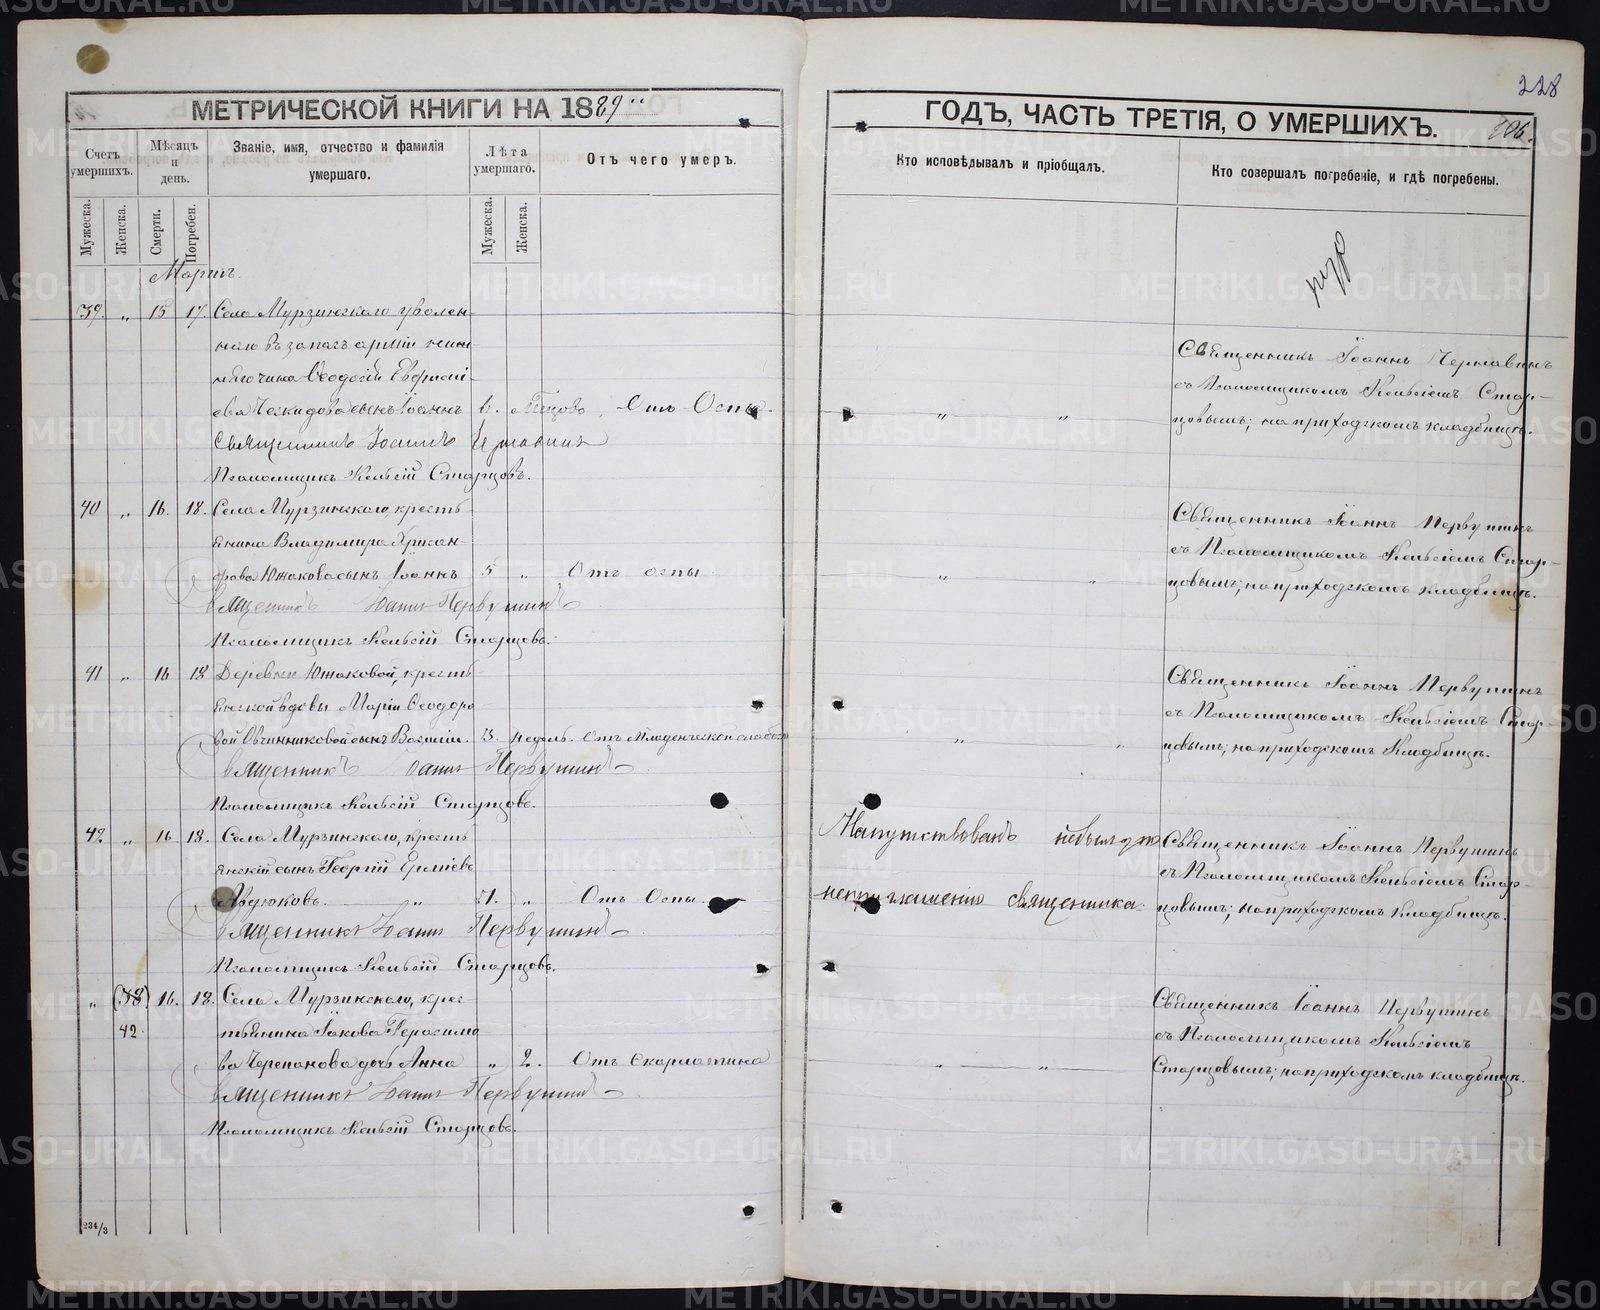 228
МЕТРИЧЕСКОЙ КНИГИ НА 1889
ГОДЪ, ЧАСТЬ ТРЕТІЯ, О УМЕРШИХЪ.
Счетъ умершихъ.
Мѣсяцъ и день.
Званіе, имя, отчество и фамилія умершаго.
Лѣта умершаго.
Отъ чего умеръ.
Кто исповѣдывалъ и пріобщалъ.
Кто совершалъ погребеніе, и гдѣ погребены.
Мужеска.
Женска.
Смерти.
Погребен.
Мужеска.
Женска.
Мартъ.
39. „ 15 17. Села Мурзинскаго уволен-
наго въ запасъ арміи ниж-
няго чина Ѳеодосія Евфимі-
ева сынъ Іоаннъ Отъ Оспы.
Священникъ Іоаннъ
Псаломщикъ Старцовъ.
Священникъ Іоаннъ
съ Псаломщикомъ Стар-
цовымъ; на приходскомъ кладбищѣ.
40 „ 16. 18. Села Мурзинскаго, кресть
янина Владимира Хрисан-
фова Южакова сынъ Іоаннъ 5 „ Отъ оспы
Священникъ Іоаннъ Первушинъ
Псаломщикъ Старцовъ.
Священникъ Іоаннъ Первушинъ
съ Псаломщикомъ Стар-
цовымъ; на приходскомъ кладбищѣ.
41 „ 16 18 Деревни Южаковой, кресть
янской вдовы Маріи Ѳеодоро
вой Овчинниковой сынъ Василій. 3. недѣль. Отъ Младенческой слабости
Священникъ Іоаннъ Первушинъ
Псаломщикъ Старцовъ.
Священникъ Іоаннъ Первушинъ
съ Псаломщикомъ Стар-
цовымъ; на приходскомъ Кладбищѣ.
42 „ 16 18. Села Мурзинскаго, кресть
янскій сынъ Георгій
„ Отъ Оспы.
Священникъ Іоаннъ Первушинъ
Псаломщикъ Старцовъ.
Напутствованъ небылъ по
неприглашенію священника.
Священникъ Іоаннъ Первушинъ
съ Псаломщикомъ Стар-
цовымъ; на приходскомъ Кладбищѣ.
„ (38) 16. 18. Села Мурзинскаго, крес
42. тьянина Іакова Герасимо
ва Черепанова дочь Анна „ 2. Отъ Скарлатина
Священникъ Іоаннъ Первушинъ
Псаломщикъ Старцовъ.
Священникъ Іоаннъ Первушинъ
съ Псаломщикомъ
Старцовымъ; на приходскомъ кладбищѣ.
234/3
METRIKI.GASO-URAL.RU